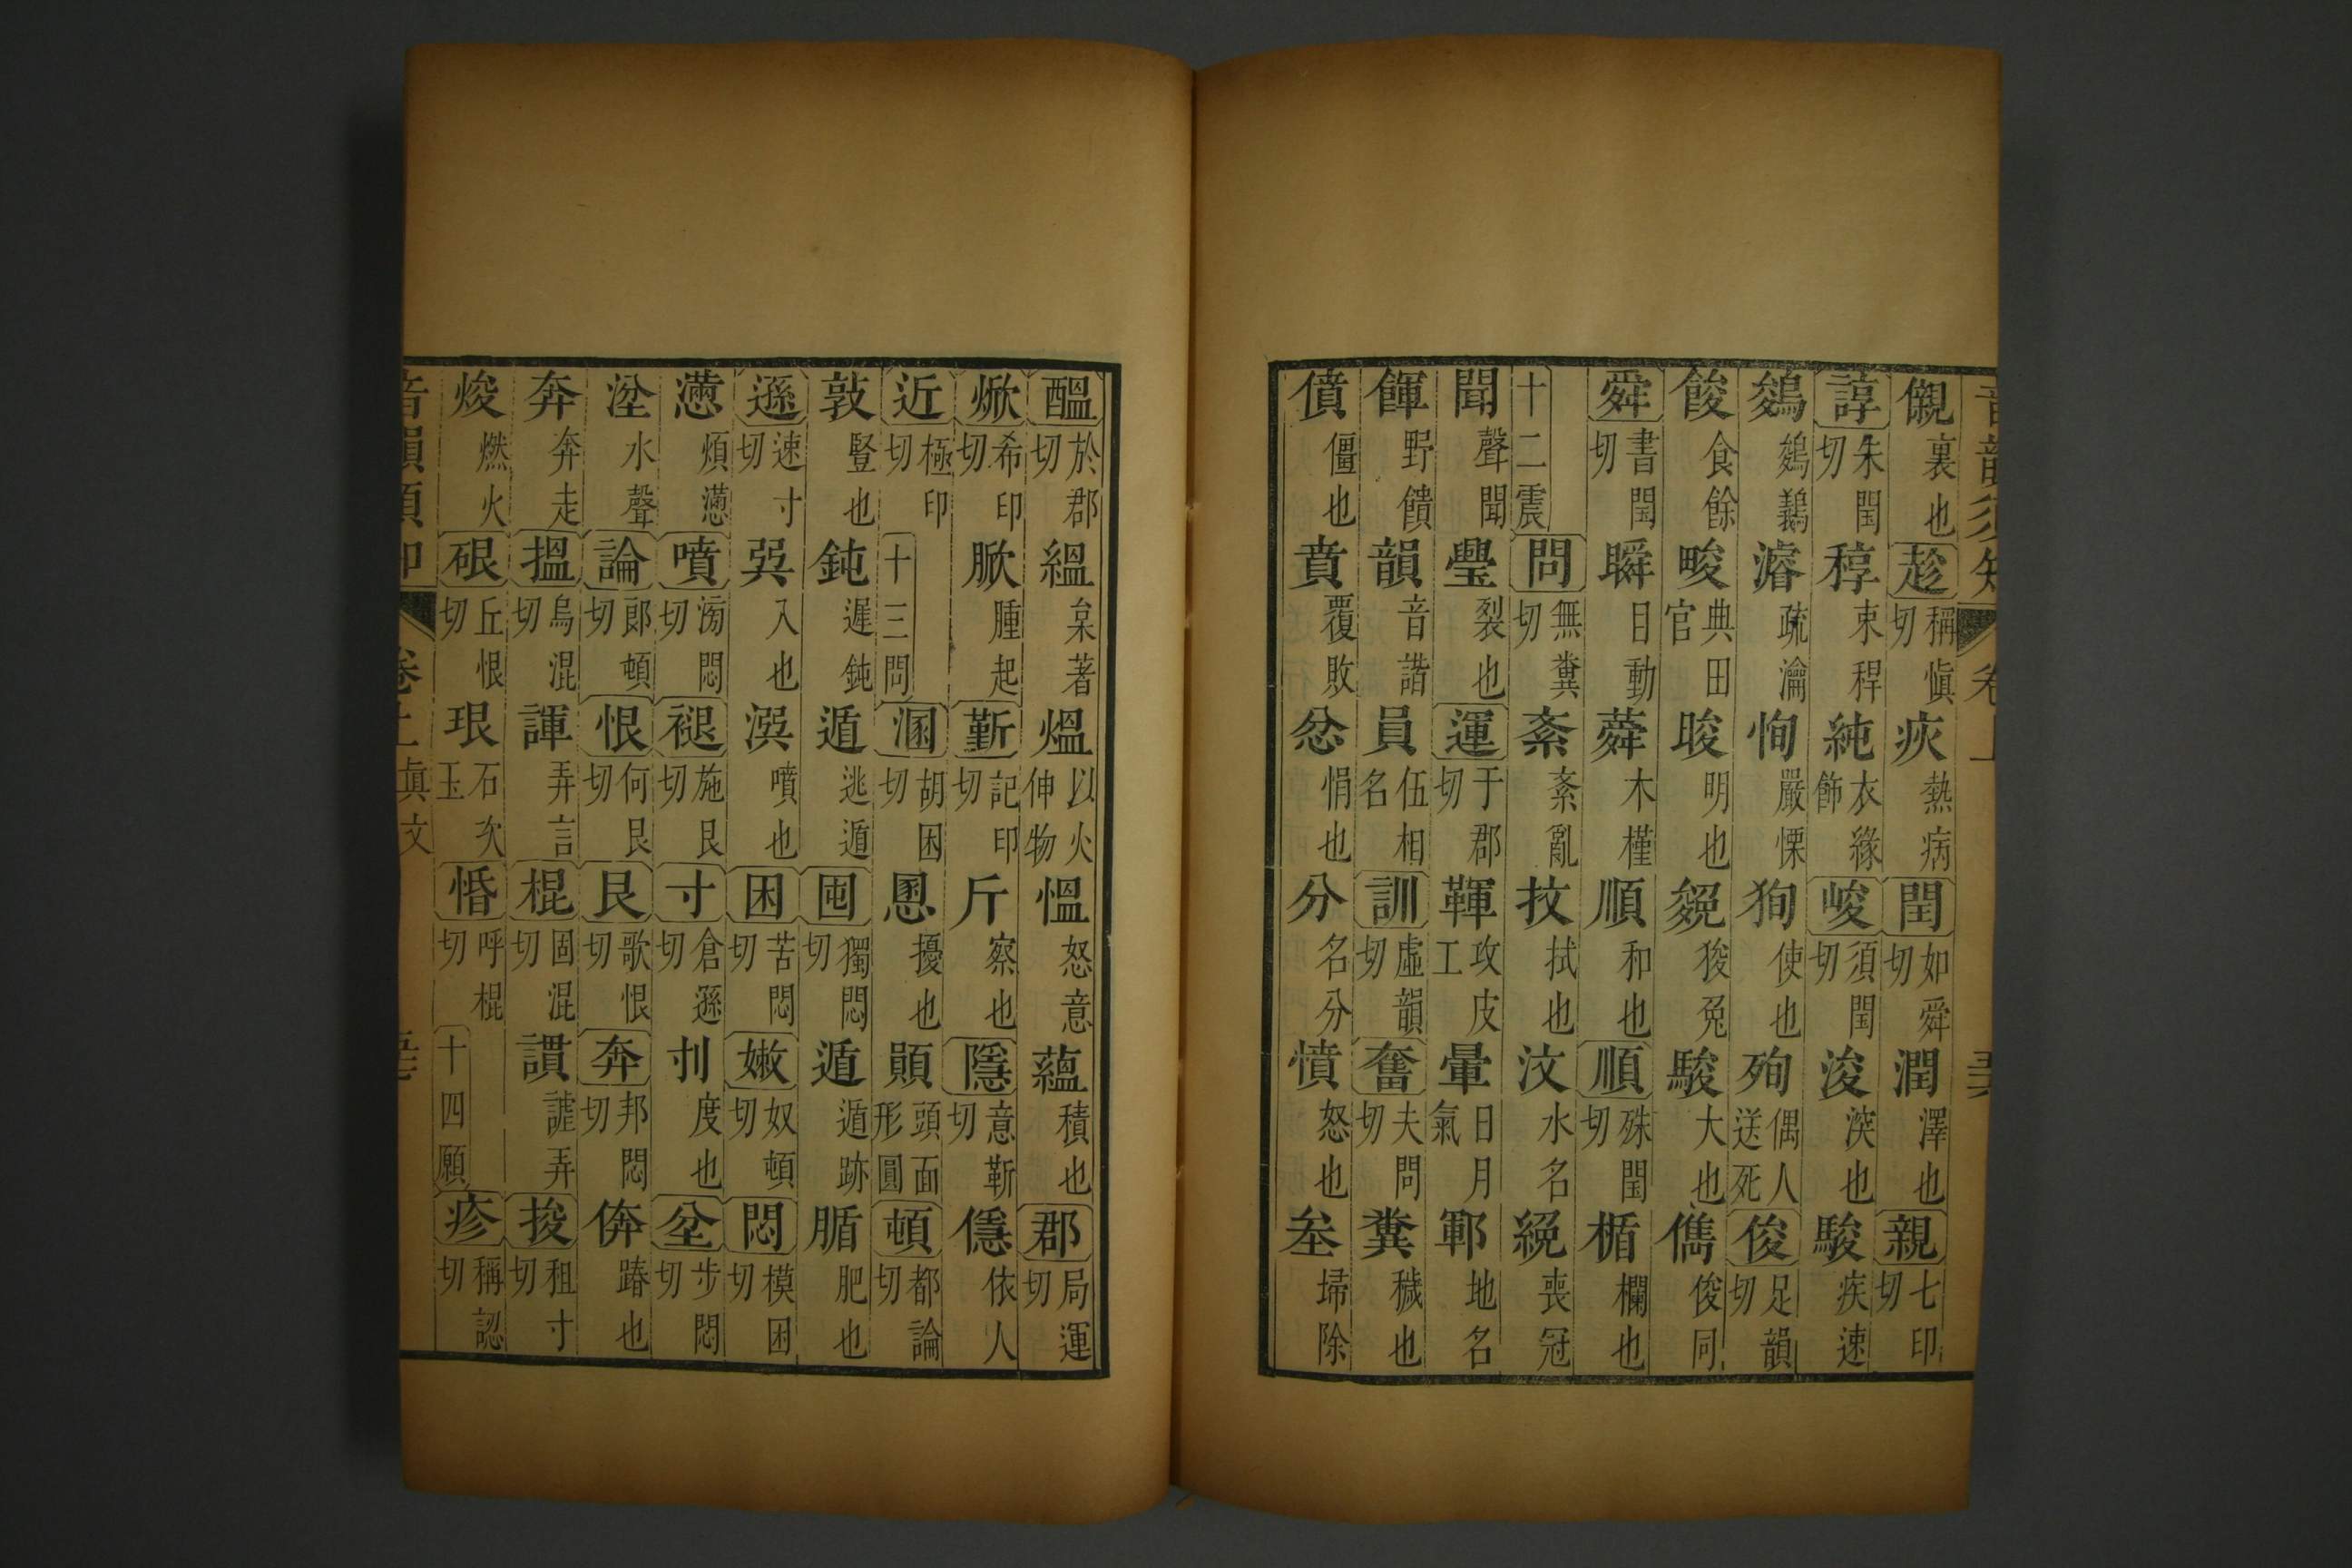 音韻須知 卷上 
儭裏也 趁稱愼切 疢熱病 閏如舜切 潤澤也 親七印切
諄朱閏切 稕束稈 純衣緣飾 峻須閏切 浚湥也 駿疾速
鵕鵕鸃 濬疏瀹 恂嚴慄 狥使也 殉偶人送死 俊足韻切
餕食餘 畯典田官 晙明也 㕙狻兔 駿大也 儁俊同
舜書閏切 瞬目動 蕣木槿 順和也 順殊閏切 楯欄也
十二震 問無糞切 紊紊亂 抆拭也 汶水名 絻喪冠
聞聲聞 璺裂也 運于郡切 鞸攻皮工 暈日月氣 鄆地名
餫野饋 韻音諧 員伍相名 訓虛韻切 奮夫問切 糞穢也
僨僵也 賁覆敗 忿悁也 分名分 憤怒也 坌埽除
醞於郡切 縕枲著 熅以火伸物 慍怒意 蘊積也 郡局運切
焮希印切 脪腫起 靳記印切 斤察也 隱意靳切 㒚依人
近極印切 十三問 溷胡困切 慁擾也 顐頭面形圓 頓都論切
敦豎也 鈍遲鈍 遁逃遁 囤獨悶切 遁遁跡 腯肥也
遜速寸切 巽入也 潠噴也 困苦悶切 嫩奴頓切 悶模困切
懣煩懣 噴滂悶切 褪施艮切 寸倉遜切 刌度也 坌步悶切
湓水聲 論郎頓切 恨何艮切 艮歌恨切 奔邦悶切 倴蹐也
奔奔走 搵烏混切 諢弄言 棍固混切 謴謔弄 捘租寸切
焌燃火 硍丘恨切 珢石次玉 惛呼棍切 十四願 疹稱認切
音韻須知 卷上 眞文